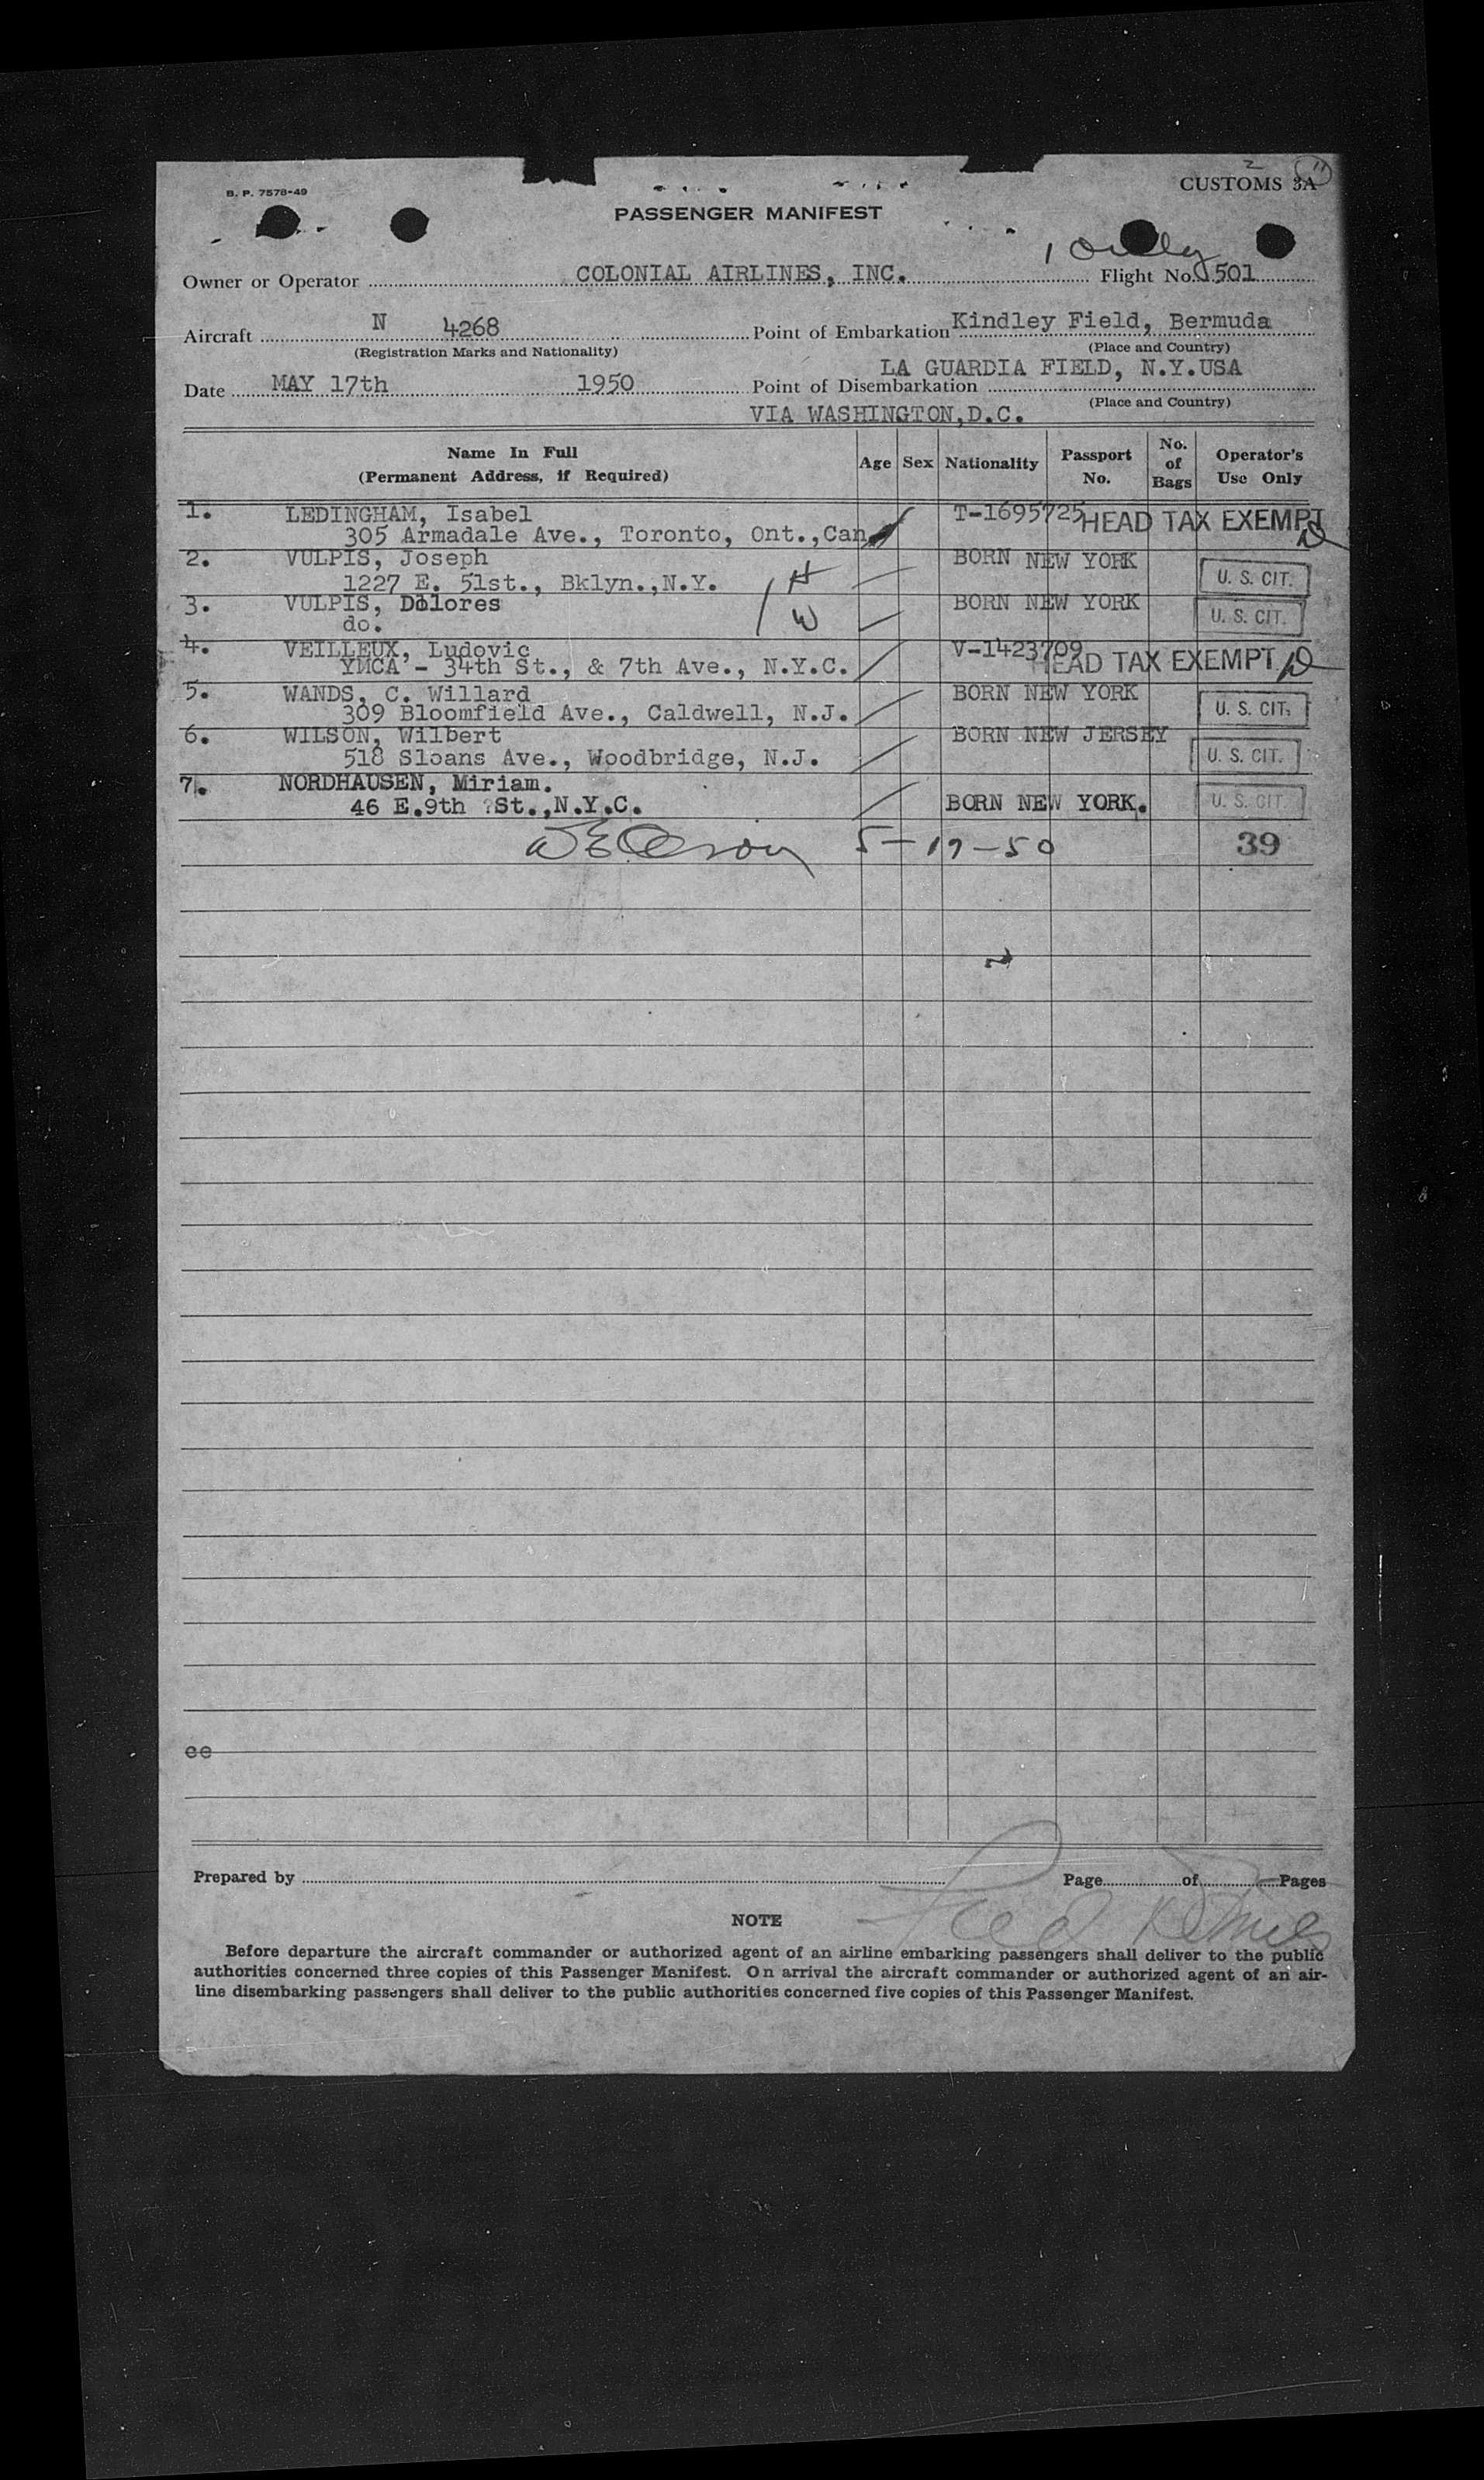 B. P. 7578-49
2 11
CUSTOMS 3A
PASSENGER MANIFEST
1 only
Owner or Operator COLONIAL AIRLINES, INC. Flight No. 501
Aircraft N 4268 Point of Embarkation Kindley Field, Bermuda
(Registration Marks and Nationality) (Place and Country)
LA GUARDIA FIELD, N.Y.USA
Date MAY 17th 1950 Point of Disembarkation
(Place and Country)
VIA WASHINGTON,D.C.
Name In Full (Permanent Address, if Required) Age Sex Nationality Passport No. No. of Bags Operator's Use Only
1. LEDINGHAM, Isabel T-1695725 HEAD TAX EXEMPT
305 Armadale Ave., Toronto, Ont.,Can.
2. VULPIS, Joseph BORN NEW YORK
1227 E. 51st., Bklyn.,N.Y. H U. S. CIT.
3. VULPIS, Dolores BORN NEW YORK
do. W U. S. CIT.
4. VEILLEUX, Ludovic V-1423709
YMCA - 34th St., & 7th Ave., N.Y.C. HEAD TAX EXEMPT
5. WANDS, C. Willard BORN NEW YORK
309 Bloomfield Ave., Caldwell, N.J. U. S. CIT.
6. WILSON, Wilbert BORN NEW JERSEY
518 Sloans Ave., Woodbridge, N.J. U. S. CIT.
7. NORDHAUSEN, Miriam.
46 E.9th ?St.,N.Y.C. BORN NEW YORK. U. S. CIT.
5-17-50 39
ee
Prepared by Page of Pages
NOTE
Before departure the aircraft commander or authorized agent of an airline embarking passengers shall deliver to the public
authorities concerned three copies of this Passenger Manifest. On arrival the aircraft commander or authorized agent of an air-
line disembarking passengers shall deliver to the public authorities concerned five copies of this Passenger Manifest.